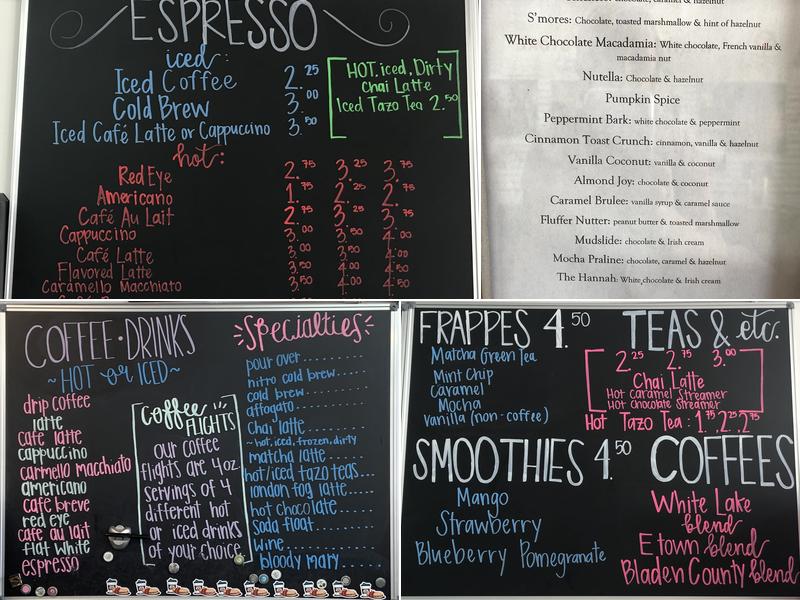 ESPRESSO
iced:
Iced Coffee 2.25
Cold Brew 3.00
Iced Café Latte or Cappuccino 3.50
HOT, iced, Dirty
Chai Latte
Iced Tazo Tea 2.50
hot:
Red Eye 2.75 3.25 3.75
Americano 1.75 2.25 2.75
Café Au Lait 2.75 3.25 3.75
Cappuccino 3.00 3.50 4.00
Café Latte 3.00 3.50 4.00
Flavored Latte 3.50 4.00 4.50
Caramello Macchiato 3.50 4.00 4.50
chocolate, caramel & hazelnut
S'mores: Chocolate, toasted marshmallow & hint of hazelnut
White Chocolate Macadamia: White chocolate, French vanilla &
macadamia nut
Nutella: Chocolate & hazelnut
Pumpkin Spice
Peppermint Bark: white chocolate & peppermint
Cinnamon Toast Crunch: cinnamon, vanilla & hazelnut
Vanilla Coconut: vanilla & coconut
Almond Joy: chocolate & coconut
Caramel Brulee: vanilla syrup & caramel sauce
Fluffer Nutter: peanut butter & toasted marshmallow
Mudslide: chocolate & Irish cream
Mocha Praline: chocolate, caramel & hazelnut
The Hannah: White chocolate & Irish cream
COFFEE • DRINKS
~HOT or ICED~
drip coffee
latte
cafe latte
cappuccino
carmello macchiato
americano
cafe breve
red eye
cafe au lait
flat white
espresso
coffee
FLIGHTS
our coffee
flights are 4oz
servings of 4
different hot
or iced drinks
of your choice
Specialties
pour over..........
nitro cold brew......
cold brew..........
affogato...........
chai latte..........
~hot, iced, frozen, dirty
matcha latte.......
hot/iced tazo teas...
london fog latte.....
hot chocolate.......
soda float.........
wine..............
bloody mary.......
FRAPPES 4.50
Matcha Green Tea
Mint Chip
Caramel
Mocha
Vanilla (non-coffee)
TEAS & etc.
2.25 2.75 3.00
Chai Latte
Hot caramel Streamer
Hot chocolate Streamer
Hot Tazo Tea: 1.75, 2.25, 2.75
SMOOTHIES 4.50
Mango
Strawberry
Blueberry Pomegranate
COFFEES
White Lake
blend
Etown blend
Bladen County blend